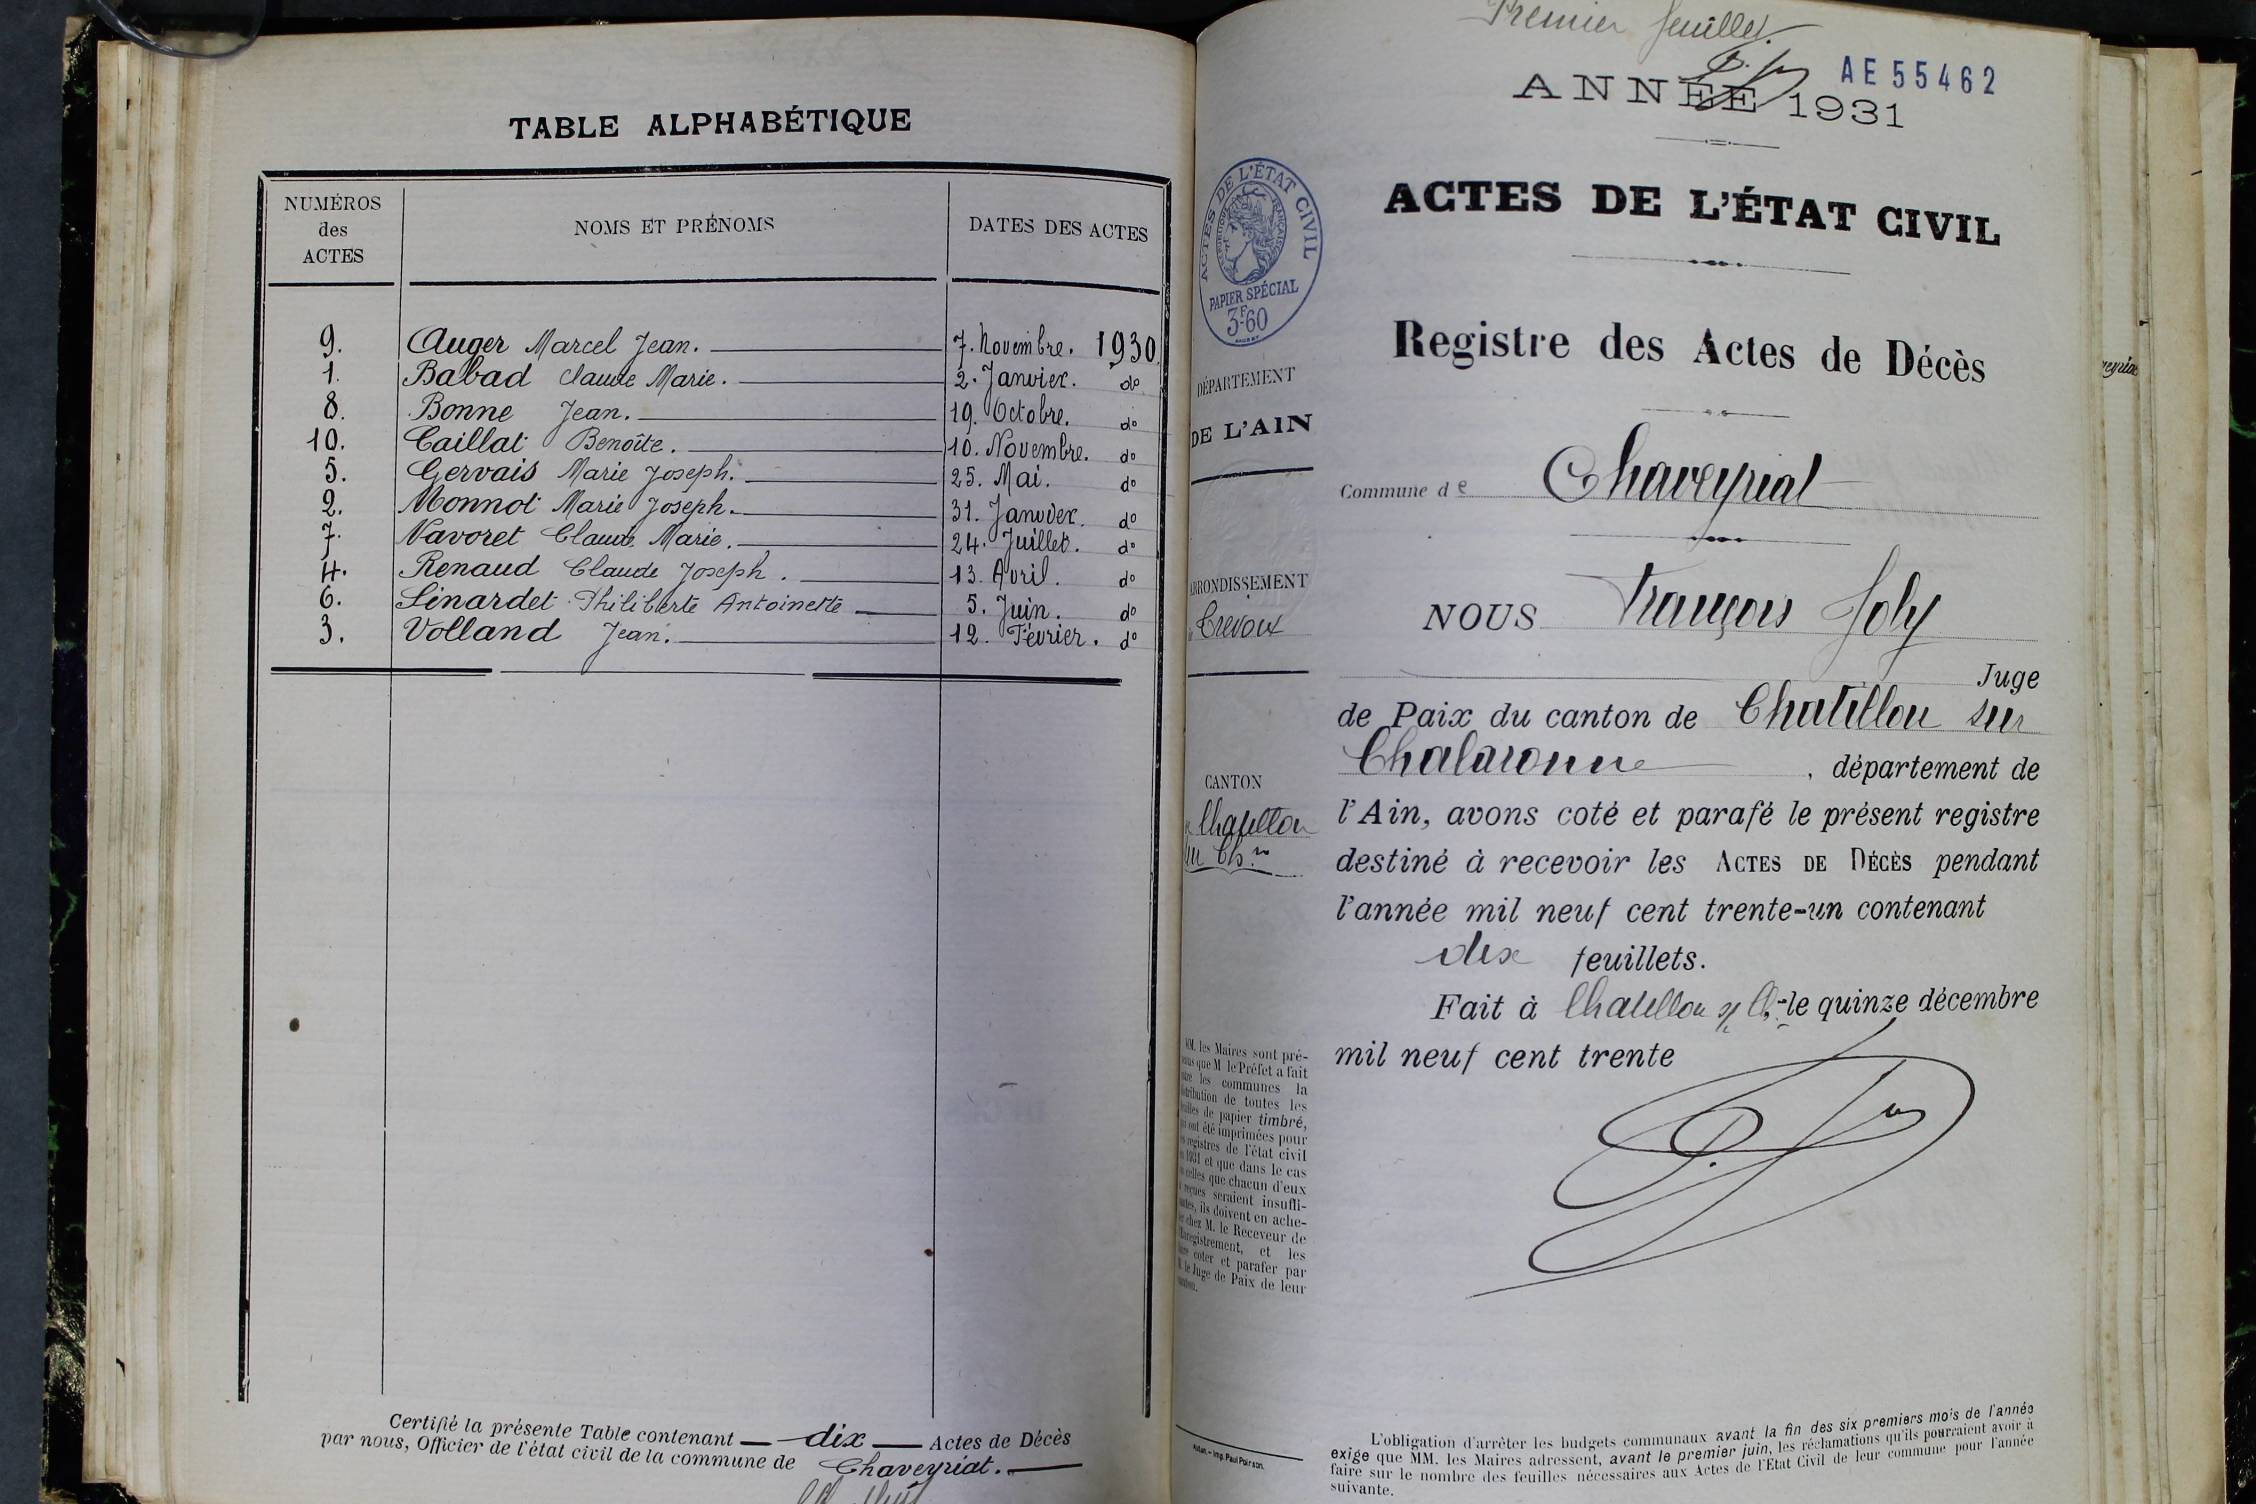 TABLE ALPHABÉTIQUE
NUMÉROS des ACTES
NOMS ET PRÉNOMS
DATES DES ACTES
9. Auger Marcel Jean. 7. Novembre. 1930
1. Babad Claude Marie. 2. Janvier. do
8. Bonne Jean. 19. Octobre. do
10. Caillat Benoîte. 10. Novembre. do
5. Gervais Marie Joseph. 25. Mai. do
2. Monnot Marie Joseph. 31. Janvier. do
7. Navoret Claude Marie. 24. Juillet. do
4. Renaud Claude Joseph. 13. Avril. do
6. Sinardet Philiberte Antoinette 5. Juin. do
3. Volland Jean. 12. Février. do
Certifié la présente Table contenant — dix — Actes de Décès
par nous, Officier de l'état civil de la commune de Chaveyriat.
Premier feuillet.
AE55462
ANNÉE 1931
ACTES DE L'ÉTAT CIVIL
ACTES DE L'ÉTAT CIVIL
RÉPUBLIQUE FRANÇAISE
PAPIER SPÉCIAL
3F-60
Registre des Actes de Décès
DÉPARTEMENT
DE L'AIN
Commune de Chaveyriat
ARRONDISSEMENT
Trévoux
NOUS François Joly
Juge
de Paix du canton de Chatillon sur
Chalaronne, département de
CANTON
Chatillon
sur Ch.ne
l'Ain, avons coté et parafé le présent registre
destiné à recevoir les ACTES DE DÉCÈS pendant
l'année mil neuf cent trente-un contenant
dix feuillets.
Fait à Chatillon s/ Ch. le quinze décembre
mil neuf cent trente
MM. les Maires sont pré-
que M le Préfet a fait
les communes la
distribution de toutes les
feuilles de papier timbré,
ont été imprimées pour
registres de l'état civil
1931 et que dans le cas
celles que chacun d'eux
reçues seraient insuffi-
ils doivent en ache-
chez M. le Receveur de
l'Enregistrement, et les
coter et parafer par
le Juge de Paix de leur
canton.
Imp. Paul Poirson.
L'obligation d'arrêter les budgets communaux avant la fin des six premiers mois de l'année
exige que MM. les Maires adressent, avant le premier juin, les réclamations qu'ils pourraient avoir à
faire sur le nombre des feuilles nécessaires aux Actes de l'Etat Civil de leur commune pour l'année
suivante.